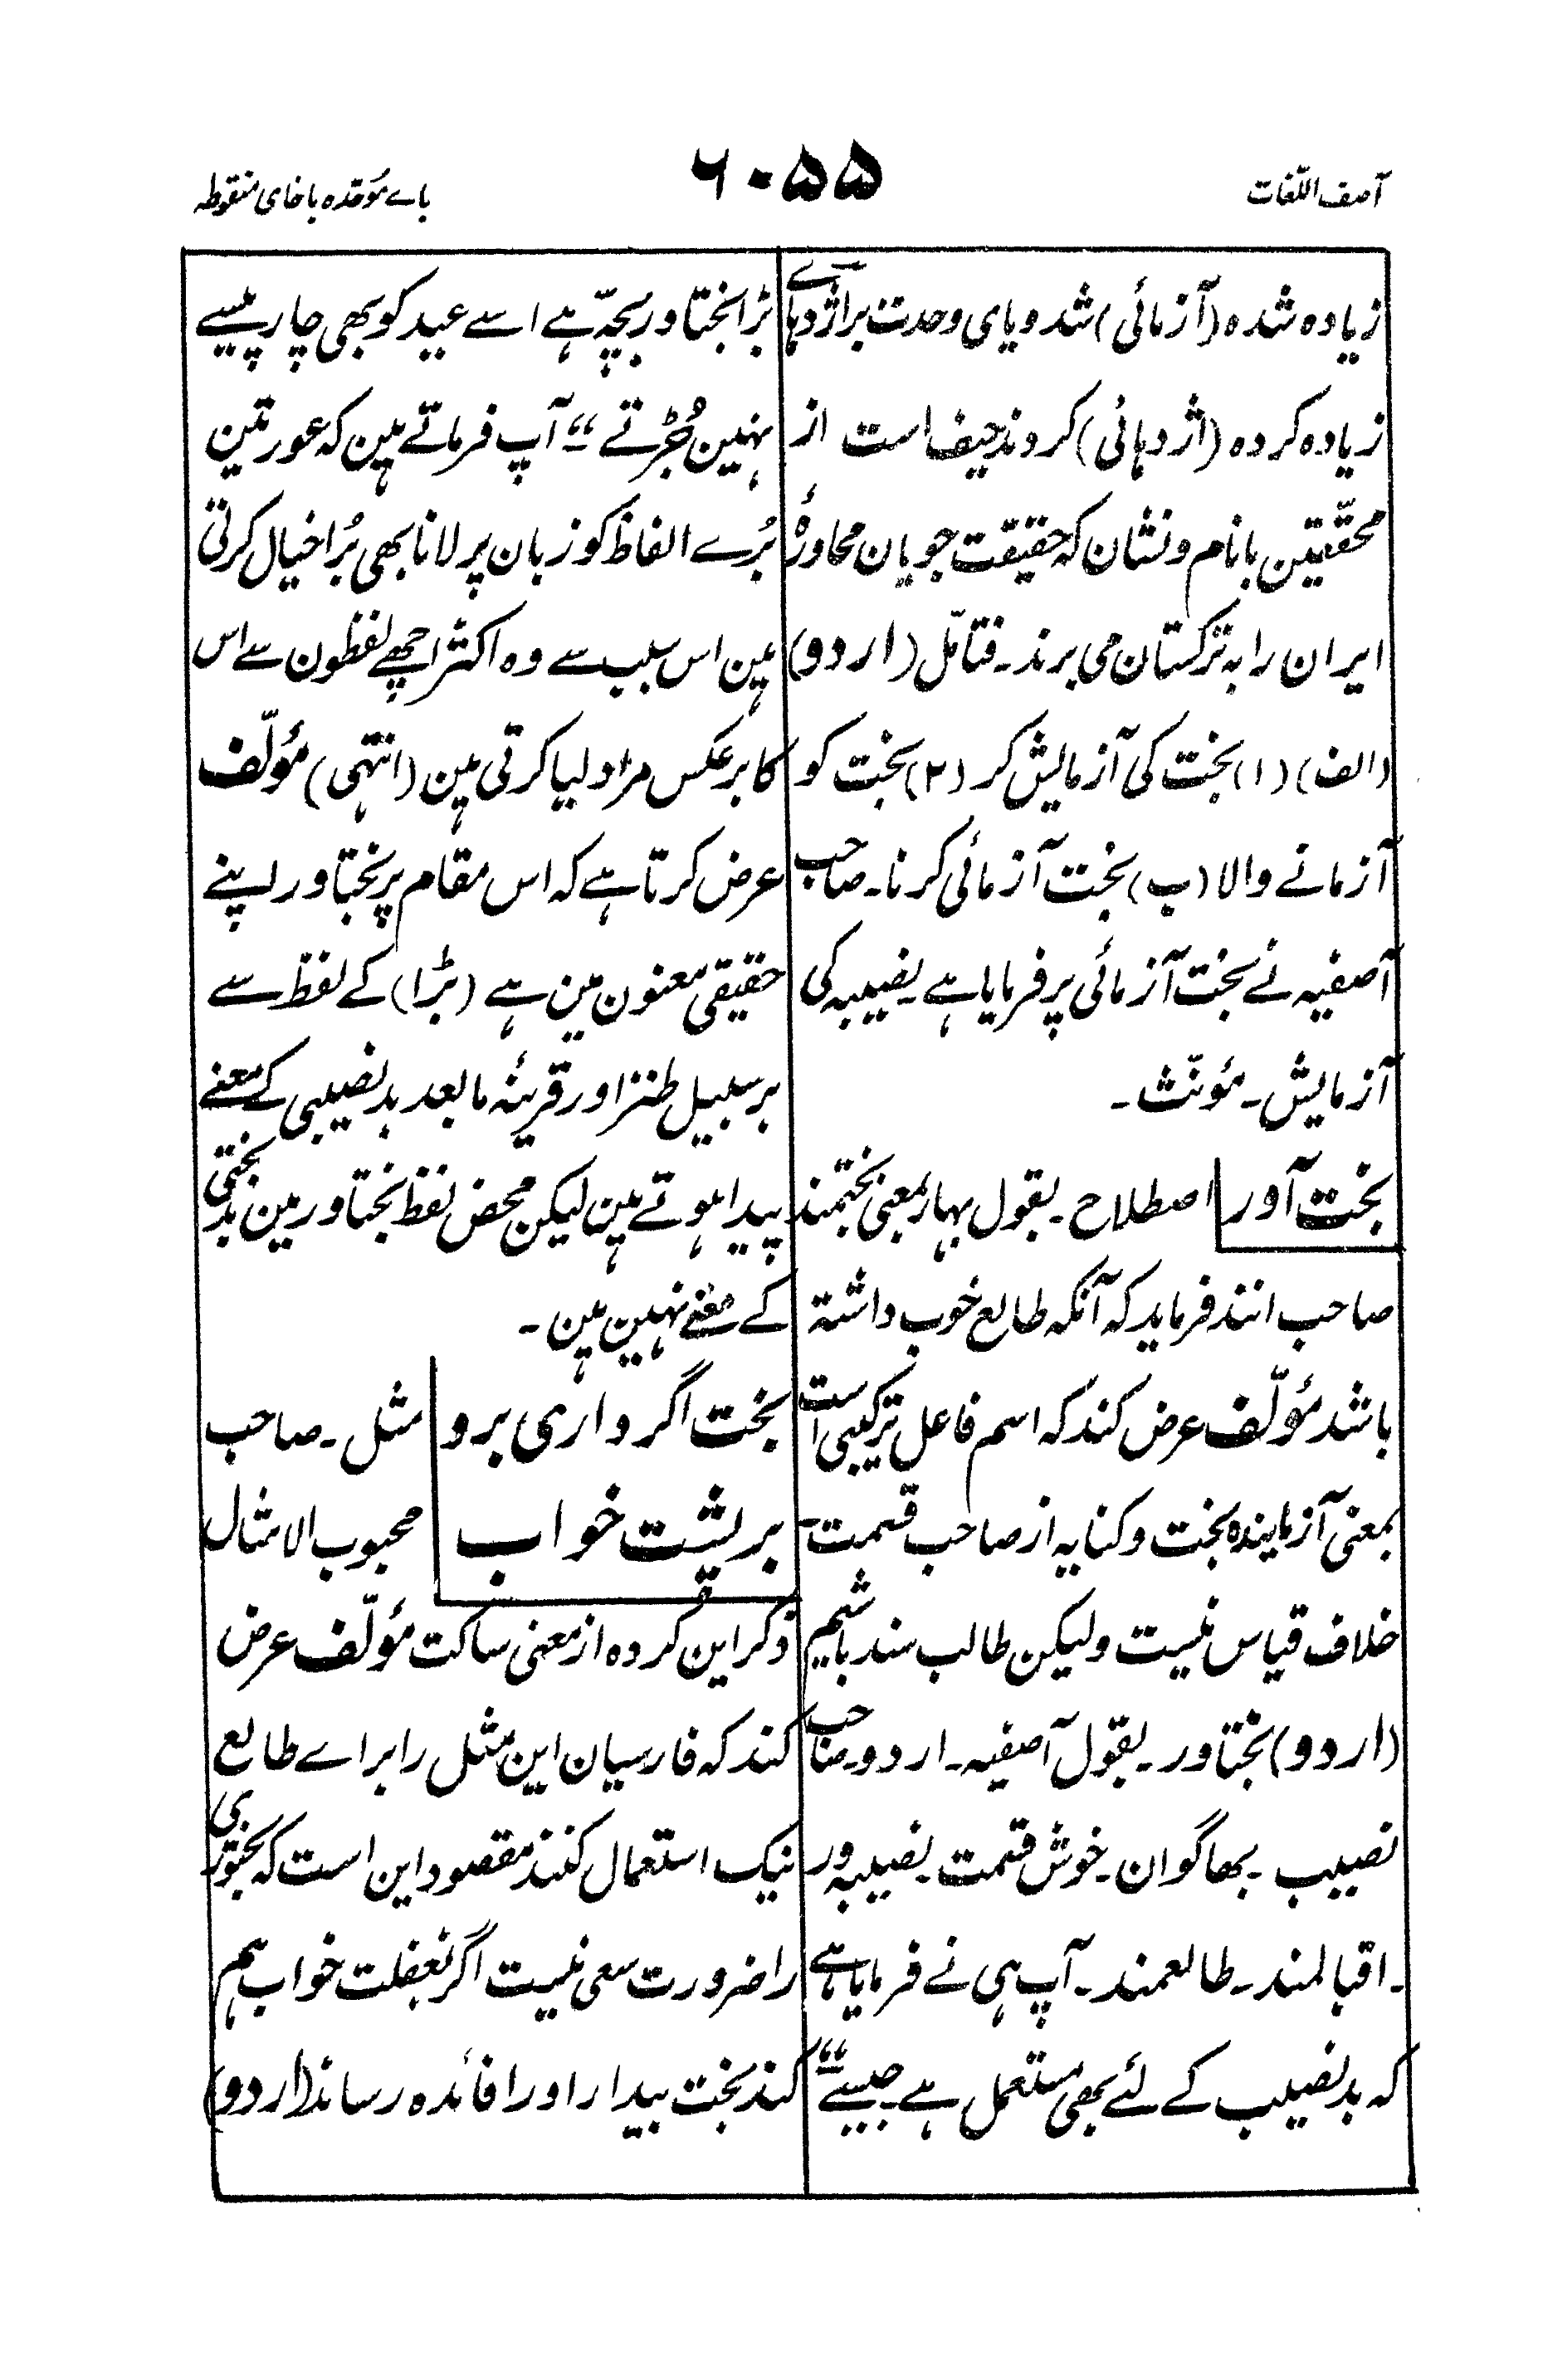 آصف اللّغات
۶۰۵۵
باے مؤحّدہ باخای منقوطہ
زیادہ شدہ (آزمائی) شد و یای وحدت بر اژدہاے
زیادہ کردہ (اژدہائی) کردند حیف است از
محقّقین بانام و نشان کہ حقیقت جویان محاورۂ
ایران را بہ ترکستان می برند۔ فتامّل (اردو)
(الف) (۱) بخت کی آزمایش کر (۲) بخت کو
آزمانے والا (ب) بخت آزمائی کرنا۔ صاحب
آصفیہ نے بخت آزمائی پر فرمایا ہے۔ نصیبہ کی
آزمایش۔ مؤنّث۔
بخت آور اصطلاح۔ بقول بہار بمعنی بختمند
صاحب انند فرماید کہ آنکہ طالع خوب داشتہ
باشد مؤلّف عرض کند کہ اسم فاعل ترکیبی است
بمعنی آزمایندہ بخت و کنایہ از صاحب قسمت۔
خلاف قیاس نیست ولیکن طالب سند باشیم
(اردو) بختاور۔ بقول آصفیہ۔ اردو۔ صاحب
نصیب۔ بھاگوان۔ خوش قسمت۔ نصیبہ ور
۔ اقبالمند۔ طالعمند۔ آپ ہی نے فرمایا ہے
کہ بدنصیب کے لئے بھی مستعمل ہے۔ جیسے “
بڑا بختاور بچّہ ہے اسے عید کو بھی چار پیسے
نہین جُڑتے “۔ آپ فرماتے ہین کہ عورتین
بُرے الفاظ کو زبان پر لانا بھی بُرا خیال کرتی
ہین اس سبب سے وہ اکثر اچھے لفظون سے اس
کا برعکس مراد لیا کرتی ہین (انتہی) مؤلّف
عرض کرتا ہے کہ اس مقام پر بختاور اپنے
حقیقی معنون مین ہے (بڑا) کے لفظ سے
برسبیل طنز اور قرینۂ مابعد بدنصیبی کے معنے
پیدا ہوتے ہین لیکن محض لفظ بختاور مین بدبختی
کے معنے نہین ہین۔
بخت اگر داری برو مثل۔ صاحب
بر پشت خواب محبوب الامثال
ذکر این کردہ از معنی ساکت مؤلّف عرض
کند کہ فارسیان این مثل را براے طالع
نیک استعمال کنند مقصود این است کہ بختوری
را ضرورت سعی نیست اگر بغفلت خواب ہم
کند بخت بیدار او را فائدہ رساند (اردو)